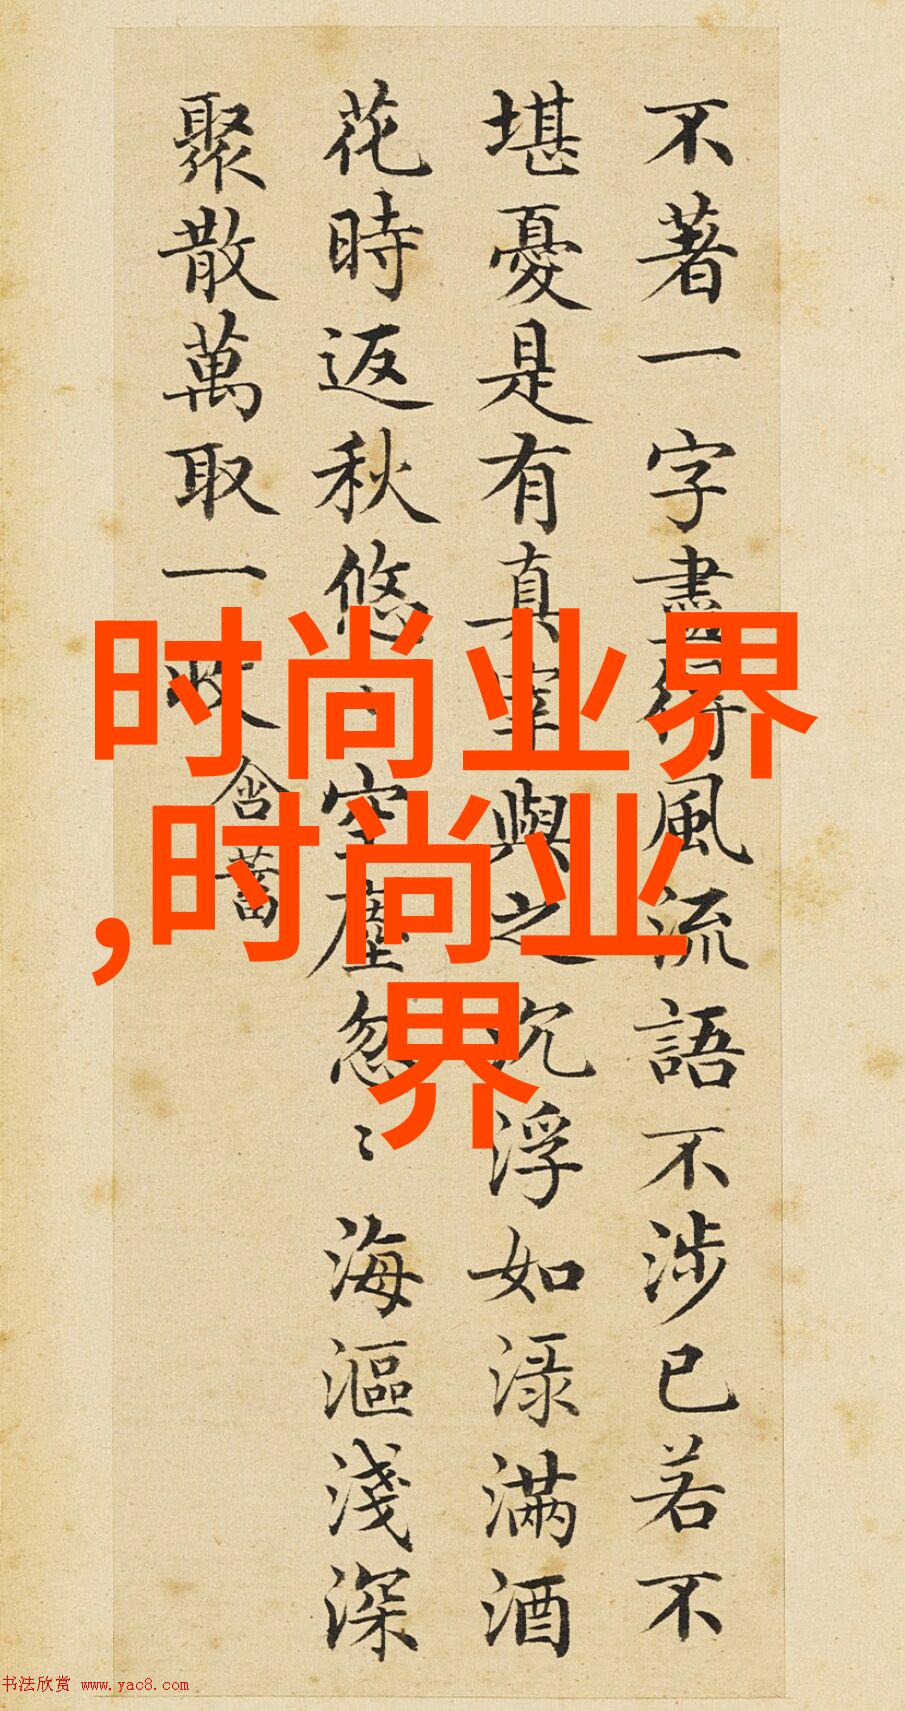 不著一字盡得風流語不涉已若不
堪憂是有真宰與之沉浮如淥滿酒
花時返秋悠〻空塵忽〻海漚淺深
聚散萬取一收
含蓄
时尚业界
,时尚业
界
书法欣赏 www.yac8.com